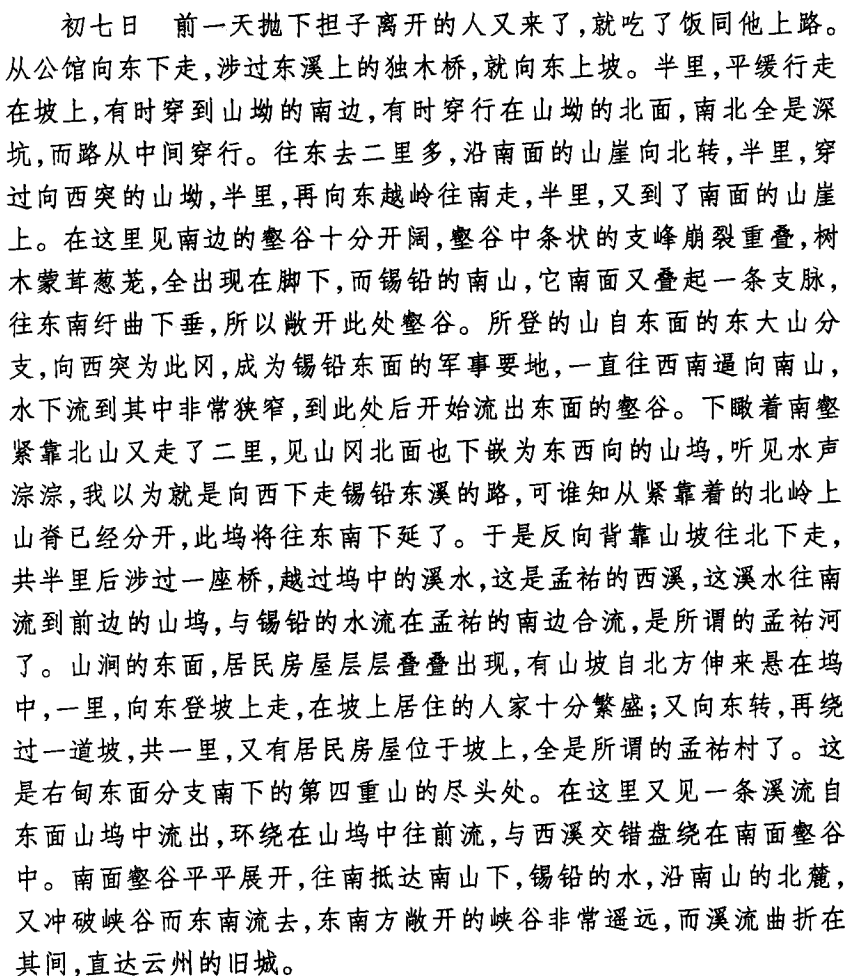 初七日　前一天抛下担子离开的人又来了,就吃了饭同他上路。
从公馆向东下走,涉过东溪上的独木桥,就向东上坡。半里,平缓行走
在坡上,有时穿到山坳的南边,有时穿行在山坳的北面,南北全是深
坑,而路从中间穿行。往东去二里多,沿南面的山崖向北转,半里,穿
过向西突的山坳,半里,再向东越岭往南走,半里,又到了南面的山崖
上。在这里见南边的壑谷十分开阔,壑谷中条状的支峰崩裂重叠,树
木蒙茸葱茏,全出现在脚下,而锡铅的南山,它南面又叠起一条支脉,
往东南纡曲下垂,所以敞开此处壑谷。所登的山自东面的东大山分
支,向西突为此冈,成为锡铅东面的军事要地,一直往西南逼向南山,
水下流到其中非常狭窄,到此处后开始流出东面的壑谷。下瞰着南壑
紧靠北山又走了二里,见山冈北面也下嵌为东西向的山坞,听见水声
淙淙,我以为就是向西下走锡铅东溪的路,可谁知从紧靠着的北岭上
山脊已经分开,此坞将往东南下延了。于是反向背靠山坡往北下走,
共半里后涉过一座桥,越过坞中的溪水,这是孟祐的西溪,这溪水往南
流到前边的山坞,与锡铅的水流在孟祐的南边合流,是所谓的孟祐河
了。山涧的东面,居民房屋层层叠叠出现,有山坡自北方伸来悬在坞
中,一里,向东登坡上走,在坡上居住的人家十分繁盛;又向东转,再绕
过一道坡,共一里,又有居民房屋位于坡上,全是所谓的孟祐村了。这
是右甸东面分支南下的第四重山的尽头处。在这里又见一条溪流自
东面山坞中流出,环绕在山坞中往前流,与西溪交错盘绕在南面壑谷
中。南面壑谷平平展开,往南抵达南山下,锡铅的水,沿南山的北麓,
又冲破峡谷而东南流去,东南方敞开的峡谷非常遥远,而溪流曲折在
其间,直达云州的旧城。